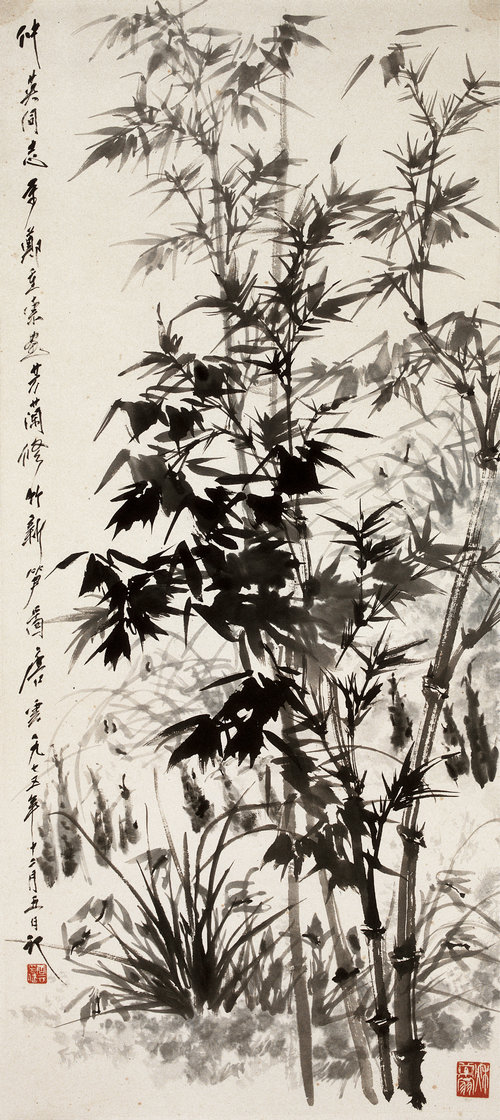 仲英同志鄭重索畫芳蘭修竹新笋圖唐雲一九七五年十二月五日記